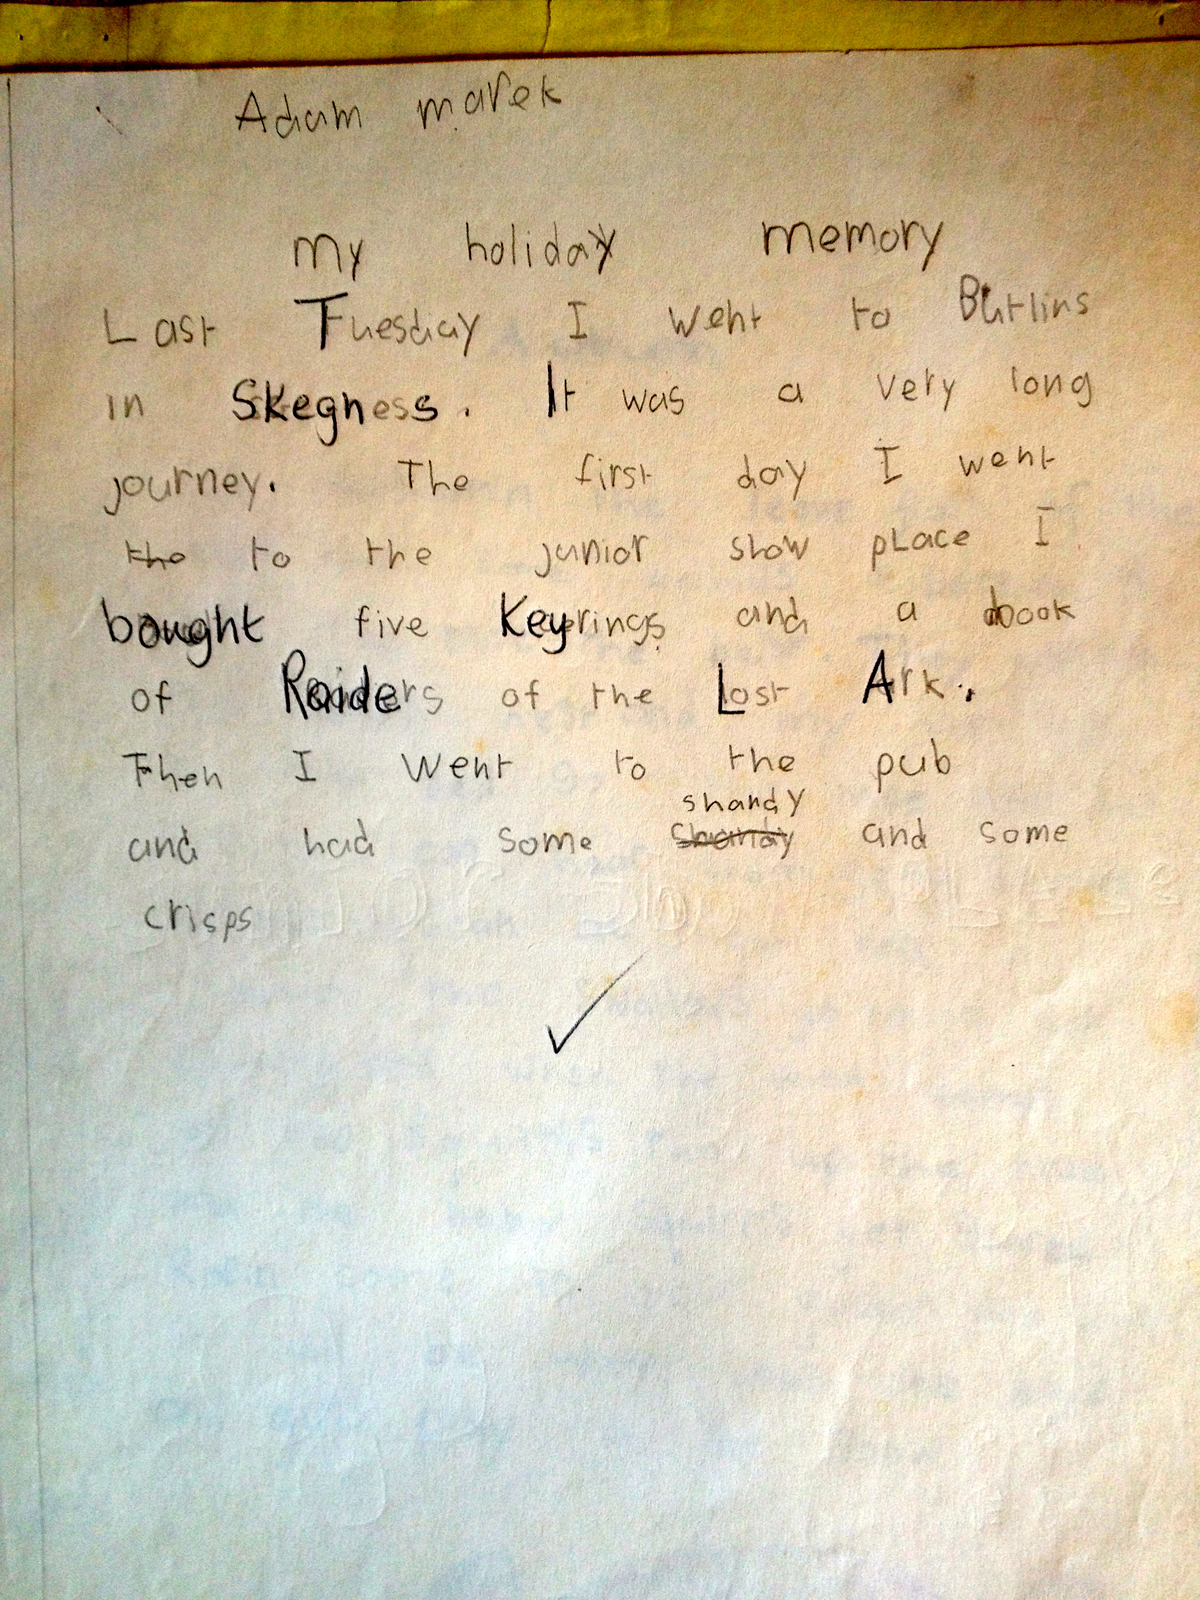 Adam marek
My holiday memory
Last Tuesday I went to Butlins
in Skegness. It was a very long
journey. The first day I went
the to the junior show place I
bought five Keyrings and a book
of Raiders of the Lost Ark.
Then I went to the pub
shandy
and had some shandy and some
crisps